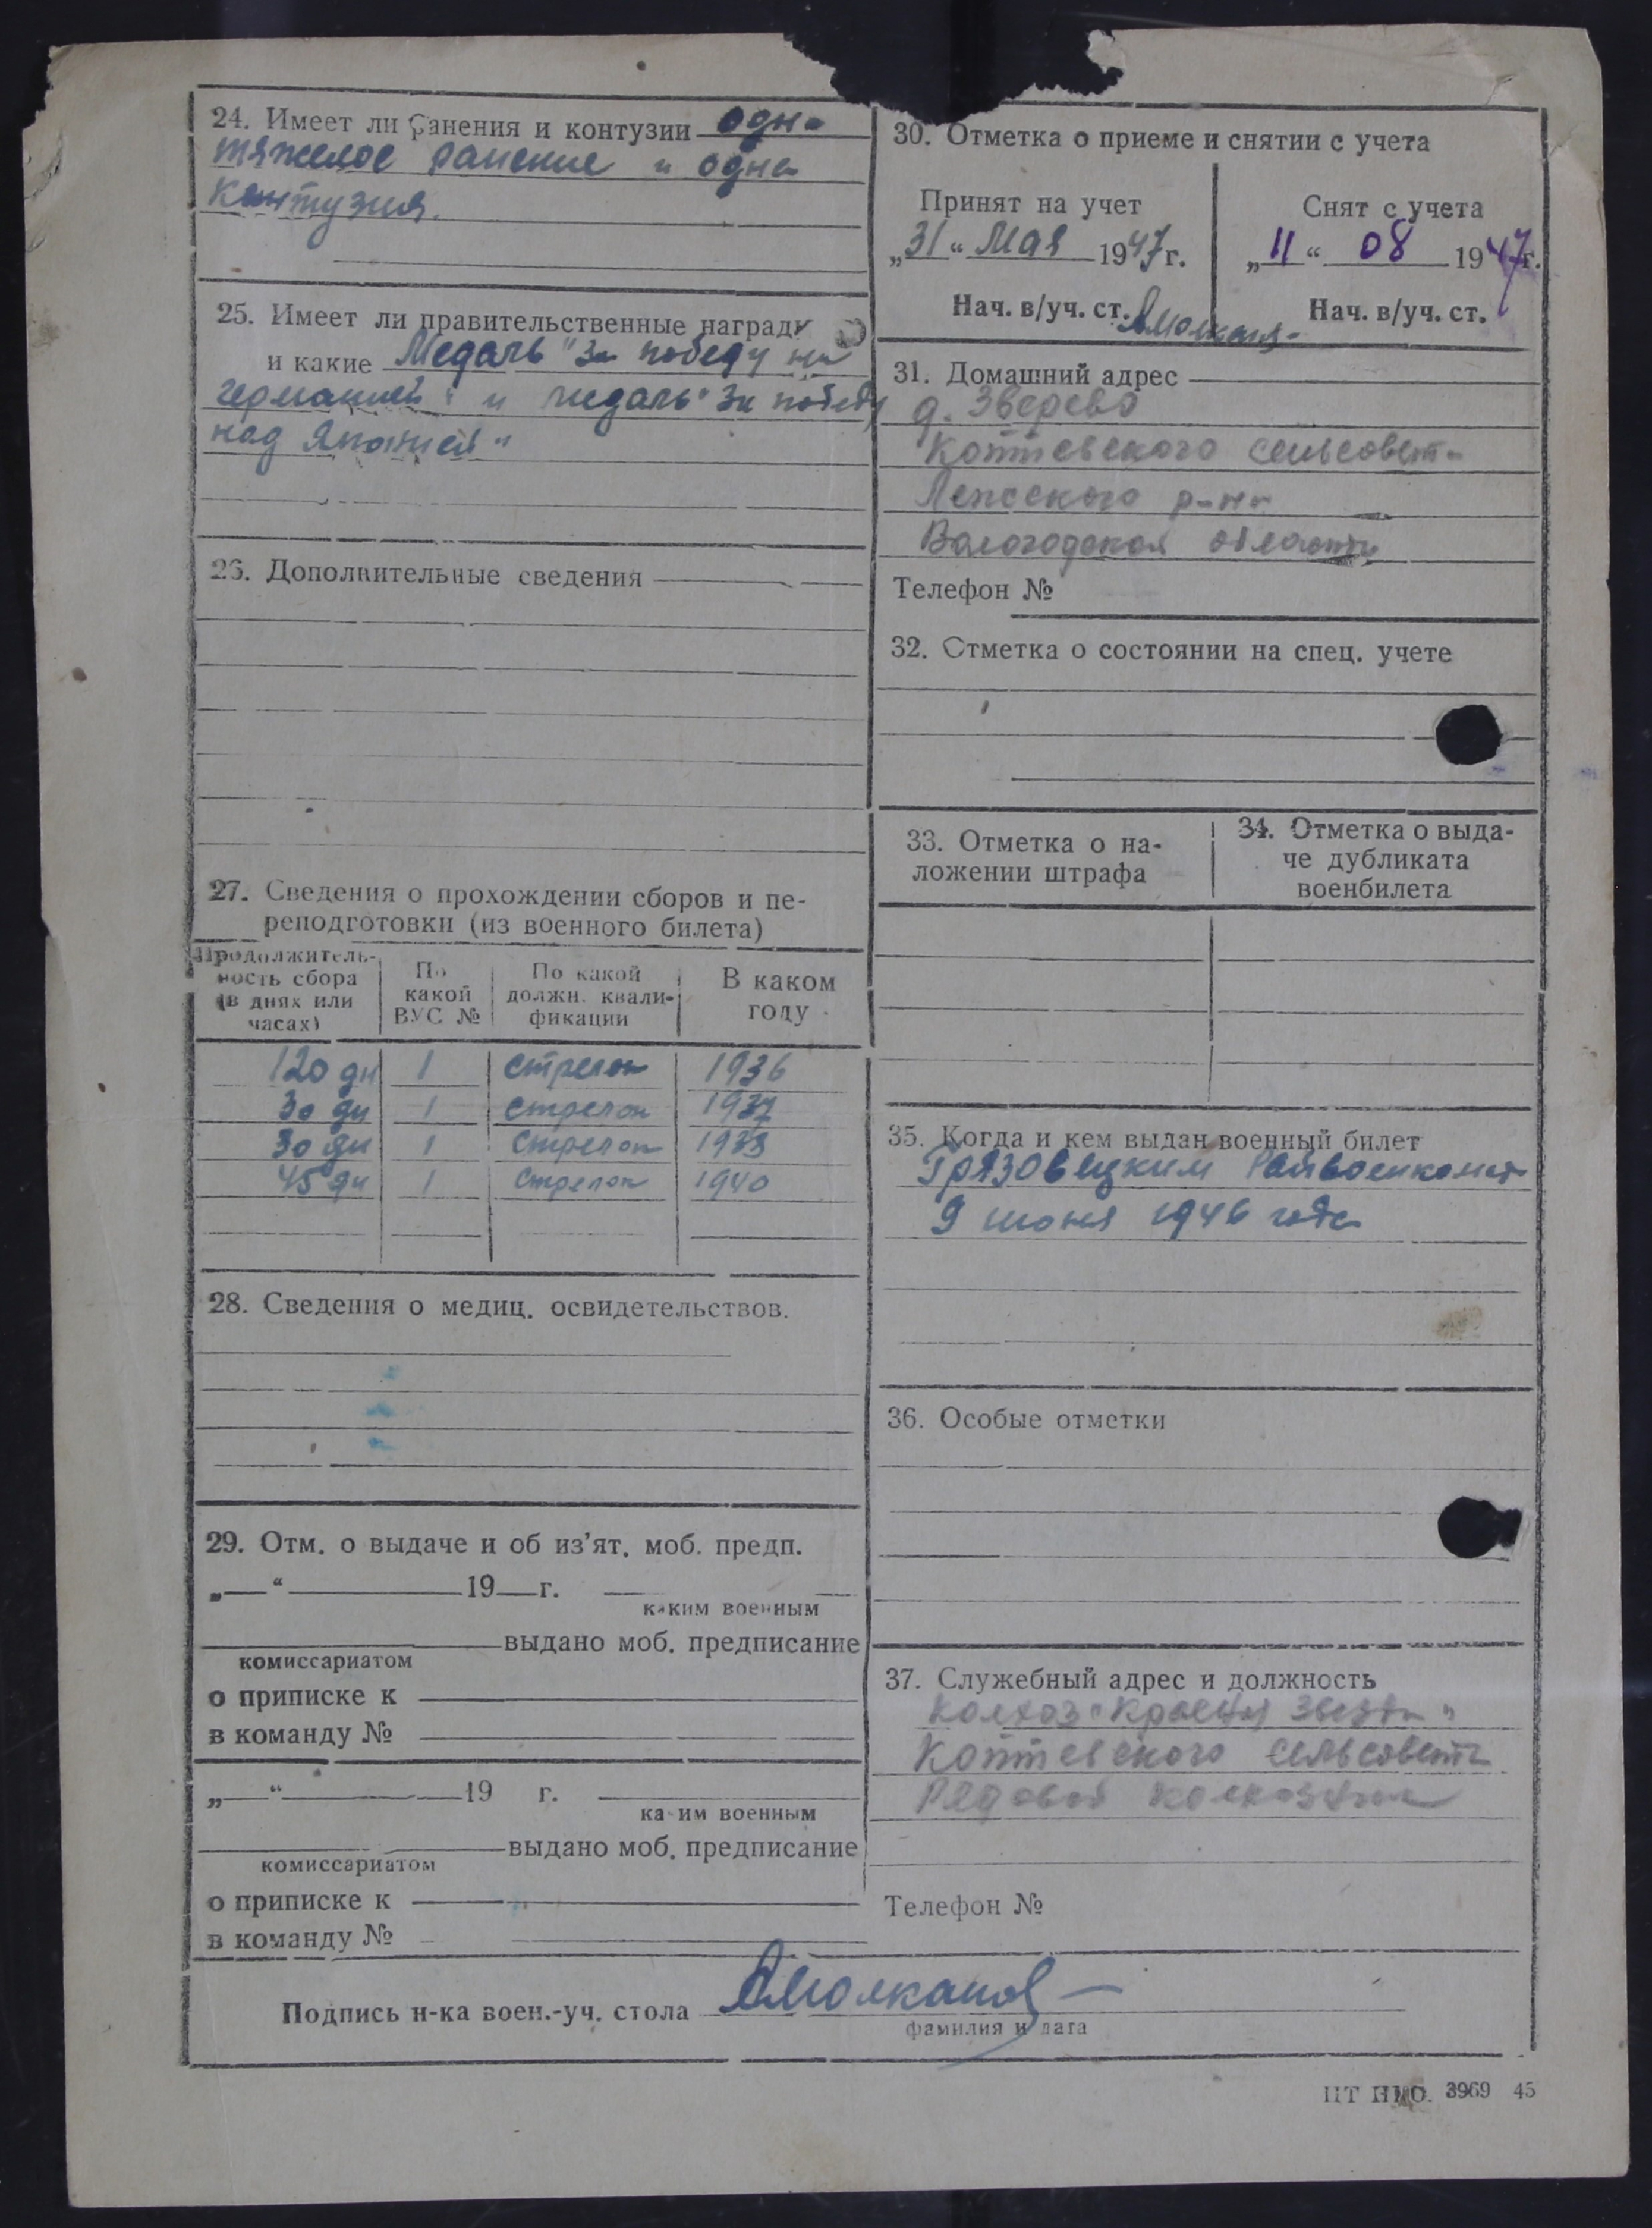 24. Имеет ли ранения и контузии одно
тяжелое ранение и одна
контузия.
25. Имеет ли правительственные награды
и какие Медаль "За победу на
германией" и медаль "За победу
над Японией"
26. Дополнительные сведения
27. Сведения о прохождении сборов и пе-
реподготовки (из военного билета)
Продолжитель-
ность сбора
(в днях или
часах)
По
какой
ВУС №
По какой
должн. квали-
фикации
В каком
году
120 дн 1 стрелок 1936
30 дн 1 стрелок 1937
30 дн 1 стрелок 1938
45 дн 1 стрелок 1940
28. Сведения о медиц. освидетельствов.
29. Отм. о выдаче и об из'ят. моб. предп.
„ “ 19 г.
каким военным
выдано моб. предписание
комиссариатом
о приписке к
в команду №
„ “ 19 г.
каким военным
выдано моб. предписание
комиссариатом
о приписке к
в команду №
30. Отметка о приеме и снятии с учета
Принят на учет
„31“ Мая 1947г.
Нач. в/уч. ст.
Снят с учета
„11“ 08 1947г.
Нач. в/уч. ст.
31. Домашний адрес
д. Зверево
Коптевского сельсовета
Лежского р-на
Вологодская области
Телефон №
32. Отметка о состоянии на спец. учете
33. Отметка о на-
ложении штрафа
34. Отметка о выда-
че дубликата
военбилета
35. Когда и кем выдан военный билет
Грязовецким Райвоенкомат
9 июня 1946 года
36. Особые отметки
37. Служебный адрес и должность
Колхоз "Красная Звезда"
Коптевского сельсовета
Рядовой колхозник
Телефон №
Подпись н-ка воен.-уч. стола
фамилия и дата
3969 45